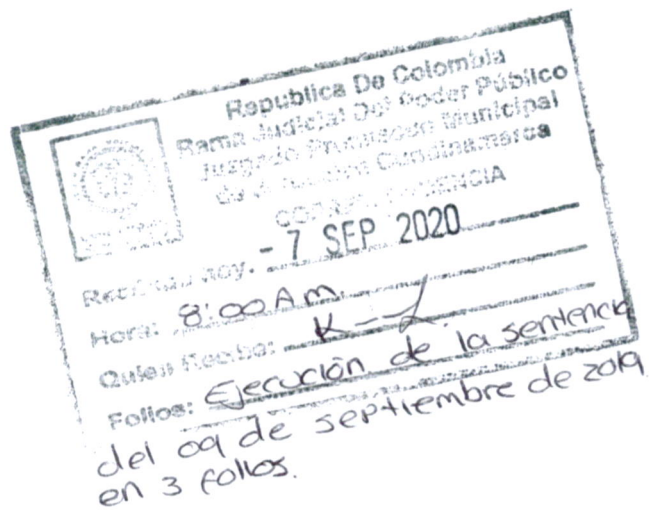 Republica De Colombia
Rama Judicial Del Poder Público
Juzgado Promiscuo Municipal
Cundinamarca
CORRESPONDENCIA
Recibido hoy: - 7 SEP 2020
Hora: 8:00 Am.
Quien Recibe:
Folios: Ejecución de la sentencia
del 09 de septiembre de 2019
en 3 folios.